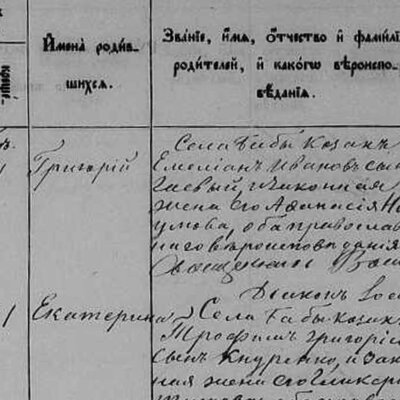 Имена родив-
шихся.
Званіе, имя, отчество и фамилі
родителей, и какого вѣроиспо-
вѣданія.
Григорій
Села Бабы козакъ
Емеліанъ Ивановъ сынъ
и законная
жена его Афанасія На
умова, оба православ
наго вѣроисповѣданія
Священникъ
Екатерина
Дьяконъ
Села Бабы козакъ
Трофимъ Григоріе
сынъ Кнуренко, и зако
ная жена его Гликер